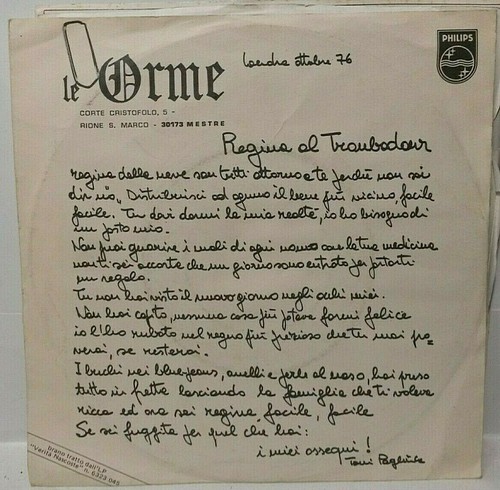 le Orme
Londra ottobre 76
PHILIPS
CORTE CRISTOFOLO, 5 -
RIONE S. MARCO - 30173 MESTRE
Regina al Troubadour
regina della neve son tutti attorno a te perché non sai
dir "no". Distribuisci ad ognuno il bene più vicino, facile
facile. Tu devi darmi la mia realtà, io ho bisogno di
un posto mio.
Non puoi guarire i mali di ogni uomo con la tua medicina
non ti sei accorta che un giorno sono entrato per portarti
un regalo.
Tu non hai visto il nuovo giorno negli occhi miei.
Non hai capito, nessuna cosa più poteva farmi felice
io l'ho rubato nel regno più prezioso che tu mai po=
verai, se resterai.
I buchi nei bluejeans, anelli e perle al naso, hai preso
tutto in fretta lasciando la famiglia che ti voleva
ricca ed ora sei regina facile, facile
Se sei fuggita per quel che hai:
i miei ossequi!
Toni Pagliuca
brano tratto dall'LP
"Verità Nascoste" n. 6323 045